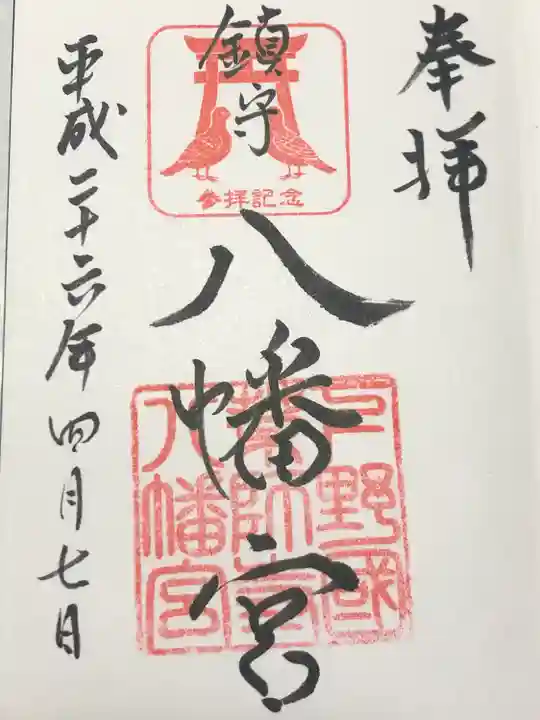 奉拝
鎮守
参拝記念
八幡宮
下野國
八幡宮
平成二十六年四月七日